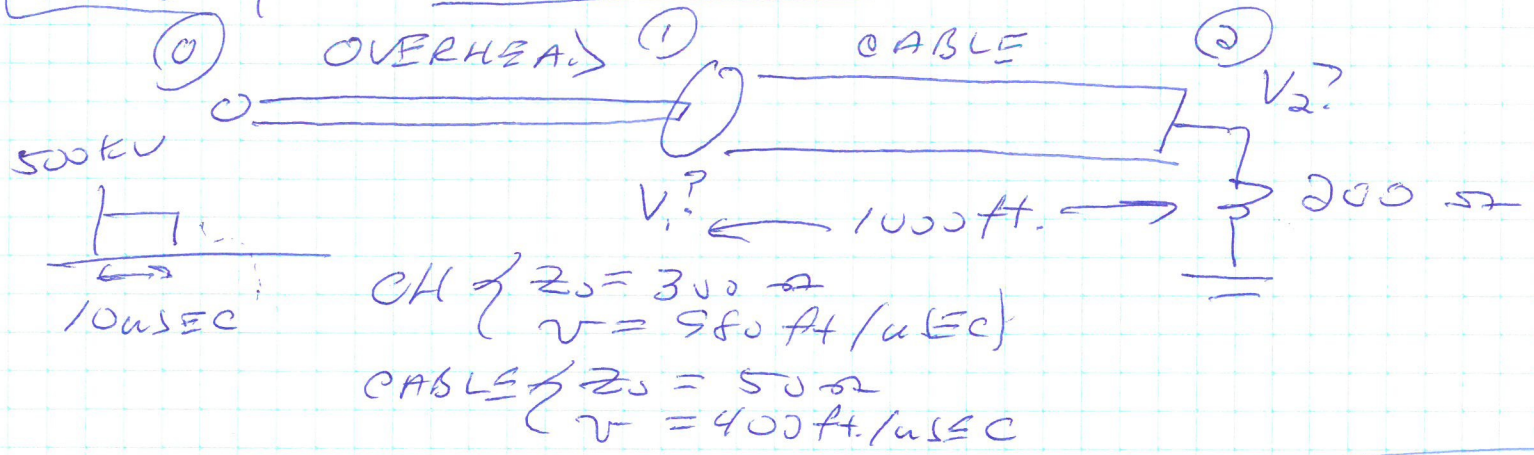 0 OVERHEAD 1 CABLE 2
V2?
500kV
V1? 1000ft. 200 Ω
10uSEC
OH { Z0 = 300 Ω
v = 980 ft/uSEC}
CABLE { Z0 = 50 Ω
v = 400ft./uSEC